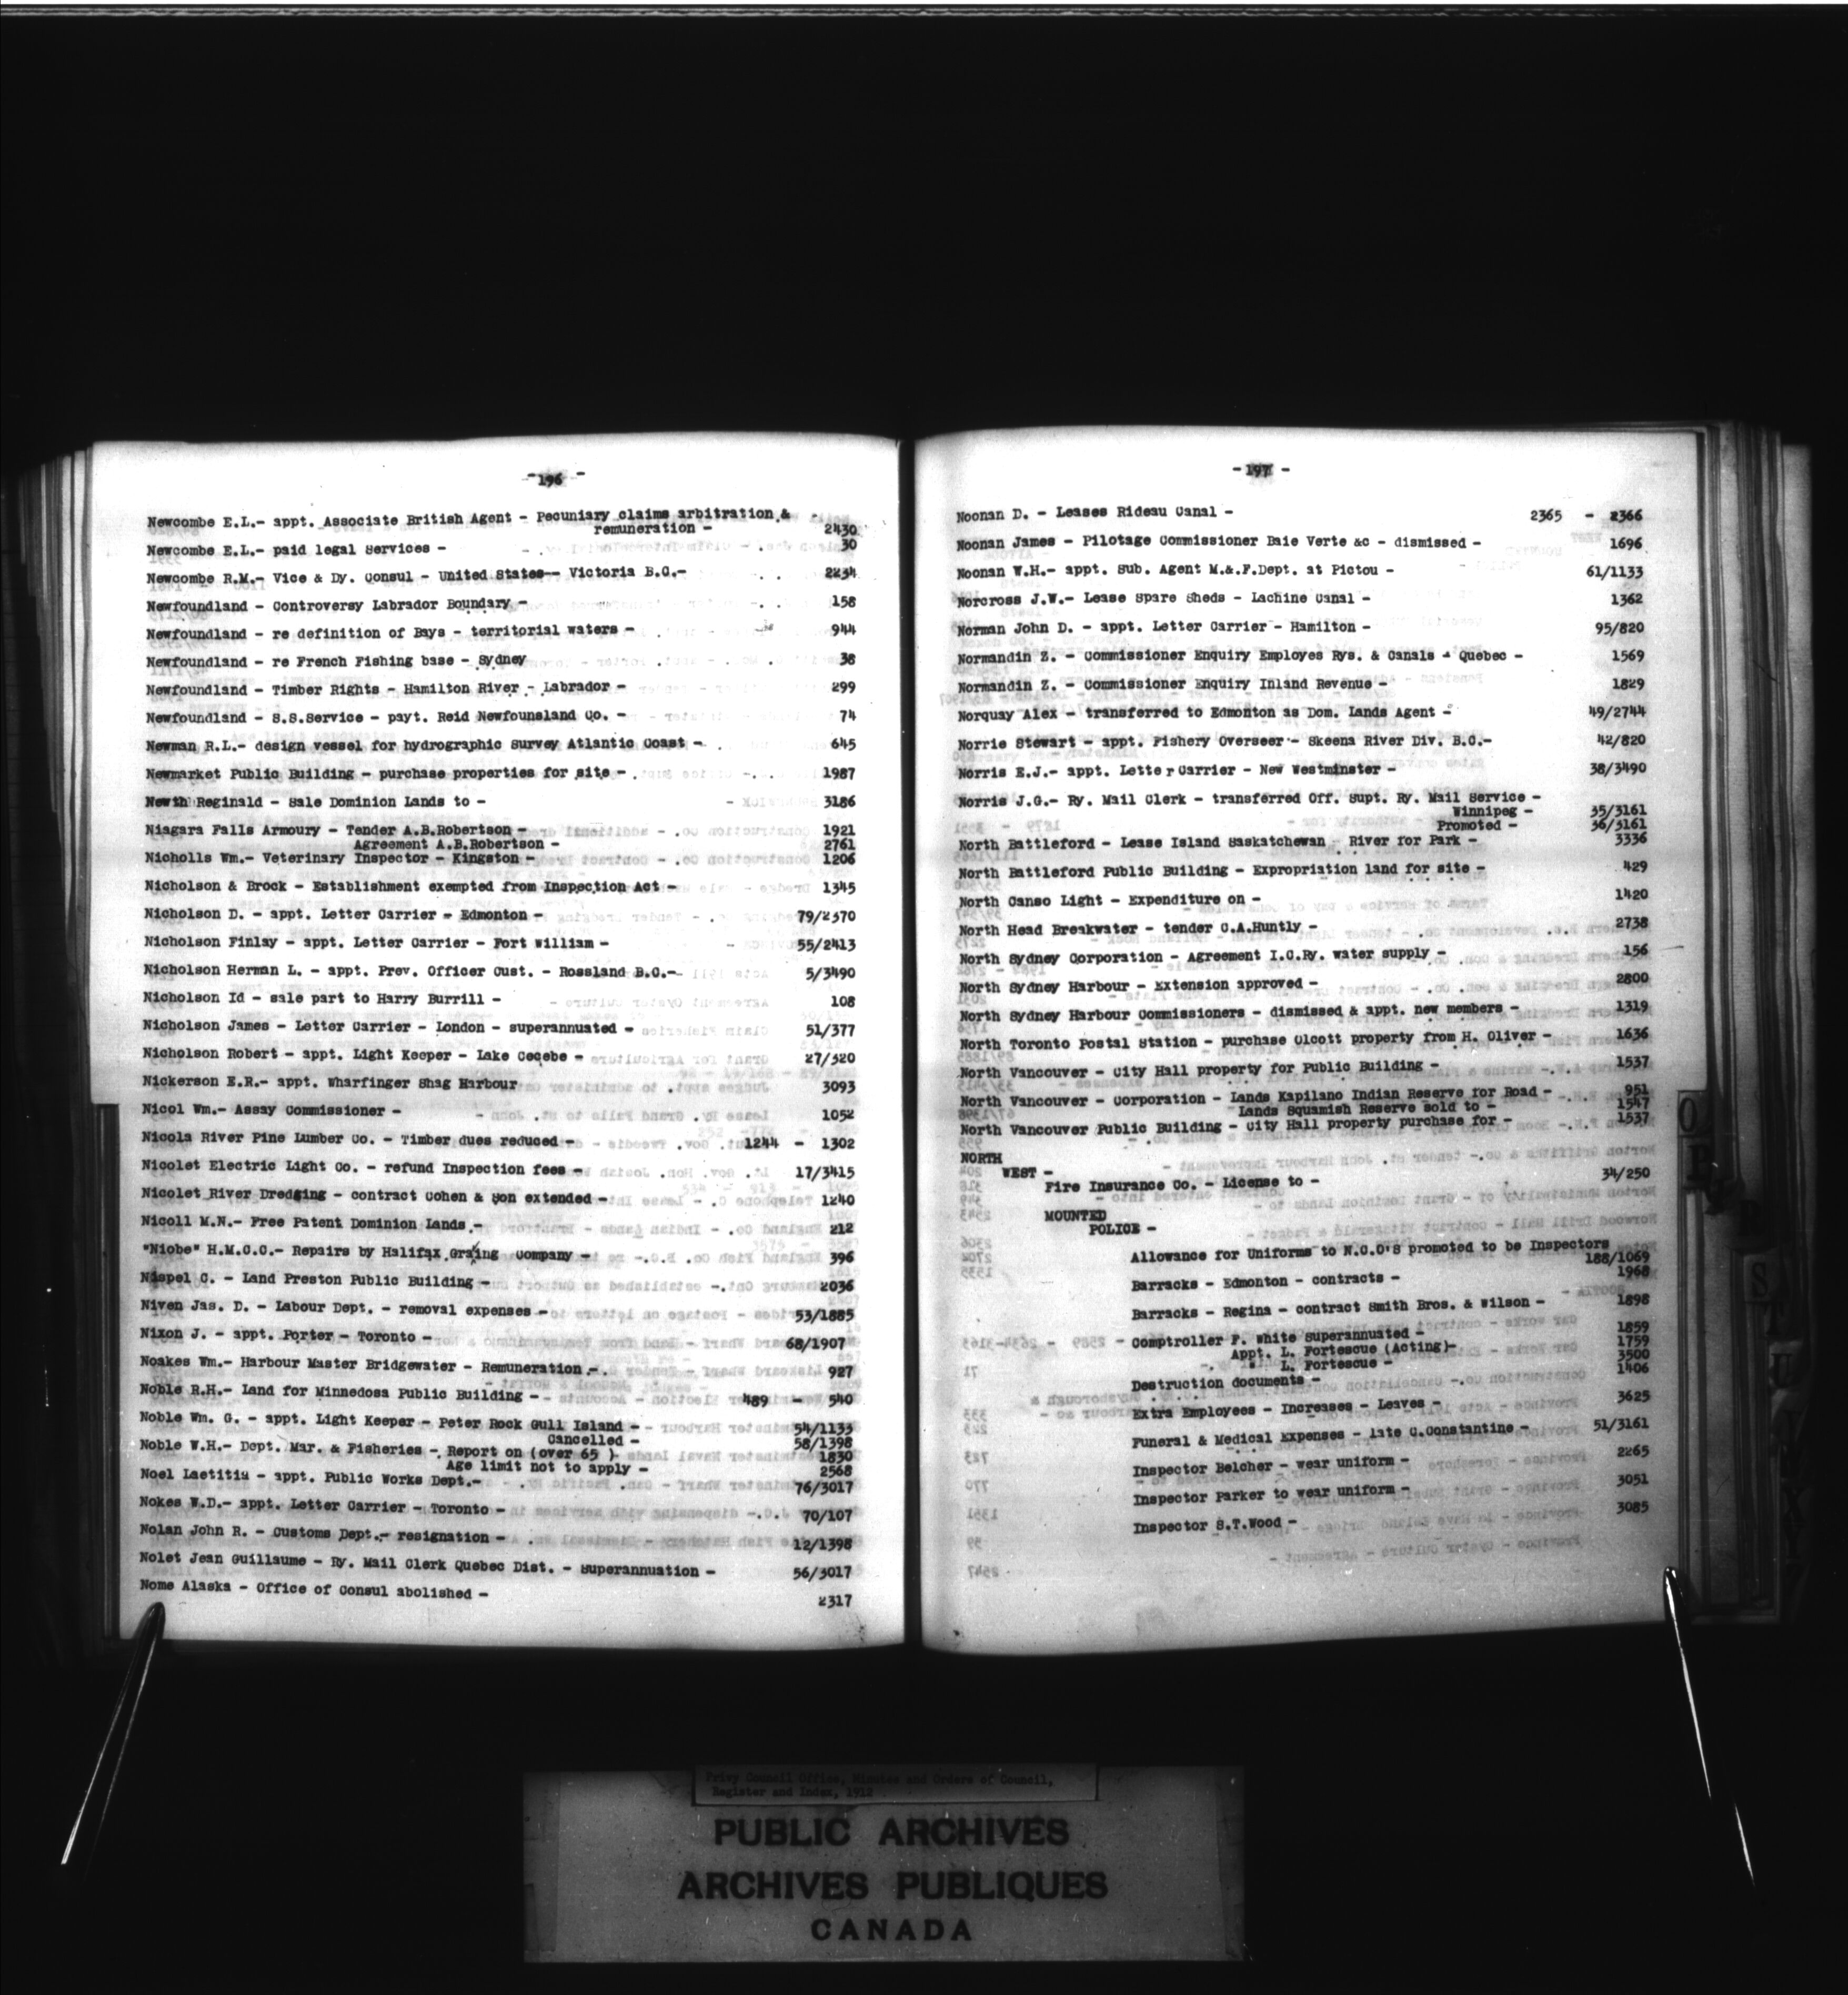 - 196 -
Newcombe E.L.- appt. Associate British Agent - Pecuniary claims arbitration &
remuneration - 2430
Newcombe E.L.- paid legal Services - 30
Newcombe R.M.- Vice & Dy. Consul - United States-- Victoria B.C.- 2234
Newfoundland - Controversy Labrador Boundary - 158
Newfoundland - re definition of Bays - territorial waters - 944
Newfoundland - re French Fishing base - Sydney 38
Newfoundland - Timber Rights - Hamilton River - Labrador - 299
Newfoundland - S.S.Service - payt. Reid Newfounsland Co. - 74
Newman R.L.- design vessel for hydrographic Survey Atlantic Coast - 645
Newmarket Public Building - purchase properties for site - 1987
Newth Reginald - Sale Dominion Lands to - 3186
Niagara Falls Armoury - Tender A.B.Robertson - 1921
Agreement A.B.Robertson - 2761
Nicholls Wm.- Veterinary Inspector - Kingston - 1206
Nicholson & Brock - Establishment exempted from Inspection Act - 1345
Nicholson D. - appt. Letter Carrier - Edmonton - 79/2370
Nicholson Finlay - appt. Letter Carrier - Fort William - 55/2413
Nicholson Herman L. - appt. Prev. Officer Cust. - Rossland B.C.- 5/3490
Nicholson Id - sale part to Harry Burrill - 108
Nicholson James - Letter Carrier - London - superannuated - 51/377
Nicholson Robert - appt. Light Keeper - Lake Cecebe - 27/320
Nickerson E.R.- appt. Wharfinger Shag Harbour 3093
Nicol Wm.- Assay Commissioner - 1052
Nicola River Pine Lumber Co. - Timber dues reduced - 1244 - 1302
Nicolet Electric Light Co. - refund Inspection fees - 17/3415
Nicolet River Dredging - contract Cohen & Son extended - 1240
Nicoll M.N.- Free Patent Dominion Lands - 212
"Niobe" H.M.C.C.- Repairs by Halifax Graing Company - 396
Nispel C. - Land Preston Public Building - 2036
Niven Jas. D. - Labour Dept. - removal expenses - 53/1885
Nixon J. - appt. Porter - Toronto - 68/1907
Noakes Wm.- Harbour Master Bridgewater - Remuneration - 927
Noble R.H.- Land for Minnedosa Public Building - 489 - 540
Noble Wm. G. - appt. Light Keeper - Peter Rock Gull Island - 54/1133
Cancelled - 58/1398
Noble W.H.- Dept. Mar. & Fisheries - Report on (over 65 ) 1830
Age limit not to apply - 2568
Noel Laetitia - appt. Public Works Dept.- 76/3017
Nokes W.D.- appt. Letter Carrier - Toronto - 70/107
Nolan John R. - Customs Dept.- resignation - 12/1398
Nolet Jean Guillaume - Ry. Mail Clerk Quebec Dist. - Superannuation - 56/3017
Nome Alaska - Office of Consul abolished - 2317
- 197 -
Noonan D. - Leases Rideau Canal - 2365 - 2366
Noonan James - Pilotage Commissioner Baie Verte &c - dismissed - 1696
Noonan W.H.- appt. Sub. Agent M.&.F.Dept. at Pictou - 61/1133
Norcross J.W.- Lease Spare Sheds - Lachine Canal - 1362
Norman John D. - appt. Letter Carrier - Hamilton - 95/820
Normandin Z. - Commissioner Enquiry Employes Rys. & Canals - Quebec - 1569
Normandin Z. - Commissioner Enquiry Inland Revenue - 1829
Norquay Alex - transferred to Edmonton as Dom. Lands Agent - 49/2744
Norrie Stewart - appt. Fishery Overseer - Skeena River Div. B.C.- 42/820
Norris E.J.- appt. Letter Carrier - New Westminster - 38/3490
Norris J.G.- Ry. Mail Clerk - transferred Off. Supt. Ry. Mail Service -
Winnipeg - 35/3161
Promoted - 36/3161
North Battleford - Lease Island Saskatchewan River for Park - 3336
North Battleford Public Building - Expropriation land for site - 429
North Canso Light - Expenditure on - 1420
North Head Breakwater - tender C.A.Huntly - 2738
North Sydney Corporation - Agreement I.C.Ry. water supply - 156
North Sydney Harbour - Extension approved - 2800
North Sydney Harbour Commissioners - dismissed & appt. new members - 1319
North Toronto Postal Station - purchase Olcott property from H. Oliver - 1636
North Vancouver - City Hall property for Public Building - 1537
North Vancouver - Corporation - Lands Kapilano Indian Reserve for Road - 951
Lands Squamish Reserve sold to - 1547
North Vancouver Public Building - City Hall property purchase for - 1537
NORTH
WEST -
Fire Insurance Co. - License to - 34/250
MOUNTED
POLICE -
Allowance for Uniforms to N.C.O'S promoted to be Inspectors
188/1069
Barracks - Edmonton - contracts - 1968
Barracks - Regina - contract Smith Bros. & Wilson - 1898
Comptroller F. White Superannuated - 1859
Appt. L. Fortescue (Acting)- 1759
" L. Fortescue - 3500
Destruction documents - 1406
Extra Employees - Increases - Leaves - 3625
Funeral & Medical Expenses - late C.Constantine - 51/3161
Inspector Belcher - wear uniform - 2265
Inspector Parker to wear uniform - 3051
Inspector S.T.Wood - 3085
Privy Council Office, Minutes and Orders of Council,
Register and Index, 1912
PUBLIC ARCHIVES
ARCHIVES PUBLIQUES
CANADA